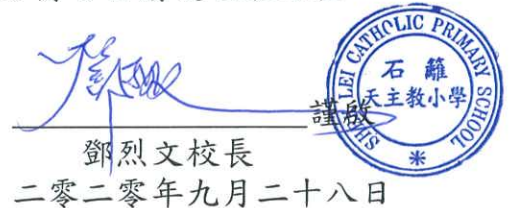 SHEK LEI CATHOLIC PRIMARY SCHOOL
石籬
天主教小學
謹啟
鄧烈文校長
二零二零年九月二十八日